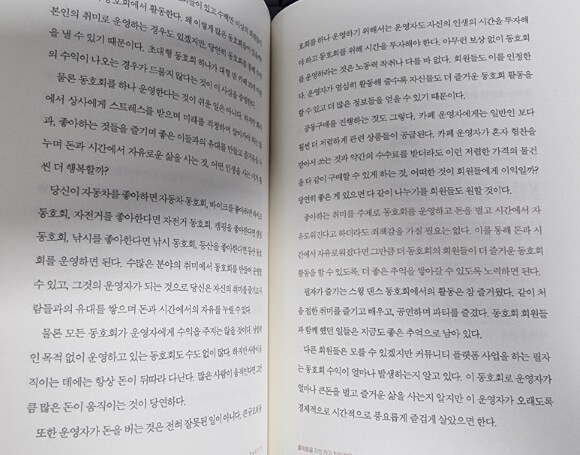 동호회에서 활동한다. 왜 이렇게 많은
본인의 취미로 운영하는 경우도 있겠지만, 당연히 동호회를 통해 수익
을 낼 수 있기 때문이다. 초대형 동호회 하나가
의 수익이 나오는 경우가 드물지 않다는 것이
물론 동호회를 하나 운영한다는 것이 쉬운 일은 아니다. 하지만
에서 상사에게 스트레스를 받으며 미래를 걱정하며 살아가
과, 좋아하는 것들을 즐기며 좋은 이들과의 유대를 만들고
누며 돈과 시간에서 자유로운 삶을 사는 것, 어떤 인생을 사는
씬 더 행복할까?
당신이 자동차를 좋아하면 자동차 동호회, 바이크를 좋아하면
동호회, 자전거를 좋아한다면 자전거 동호회, 캠핑을 좋아한다면
동호회, 낚시를 좋아한다면 낚시 동호회, 등산을 좋아한다면 등산
회를 운영하면 된다. 수많은 분야의 취미에서 동호회를 만들어
수 있고, 그것의 운영자가 되는 것으로 당신은 자신의 취미를 즐기고
람들과의 유대를 쌓으며 돈과 시간에서의 자유를 누릴 수 있다.
물론 모든 동호회가 운영자에게 수익을 주지는 않을 것이다.
인 목적 없이 운영하고 있는 동호회도 수도 없이 많다. 하지만 사람이
직이는 데에는 항상 돈이 뒤따라 다닌다. 많은 사람이 움직인다면 그
큼 많은 돈이 움직이는 것이 당연하다.
또한 운영자가 돈을 버는 것은 전혀 잘못된 일이 아니다.
호회를 하나 운영하기 위해서는 운영자도 자신의 인생의 시간을 투자해
야 하고 동호회를 위해 시간을 투자해야 한다. 아무런 보상 없이 동호회
를 운영하라는 것은 노동력 착취나 다를 바 없다. 회원들도 이를 인정한
다. 운영자가 열심히 활동해 줄수록 자신들도 더 즐거운 동호회 활동을
할 수 있고 더 많은 정보들을 얻을 수 있기 때문이다.
공동구매를 진행하는 것도 그렇다. 카페 운영자에게는 일반인 보다
훨씬 더 저렴하게 관련 상품들이 공급된다. 카페 운영자가 혼자 협찬을
받아서 쓰는 것과 약간의 수수료를 받더라도 이런 저렴한 가격의 물건
을 다 같이 구매할 수 있게 하는 것, 어떠한 것이 회원들에게 이익일까?
당연히 좋은 게 있으면 다 같이 나누기를 회원들도 원할 것이다.
좋아하는 취미를 주제로 동호회를 운영하고 돈을 벌고 시간에서 자
유로워진다고 하더라도 죄책감을 가질 필요는 없다. 이를 통해 돈과 시
간에서 자유로워졌다면 그만큼 더 동호회의 회원들이 더 즐거운 동호회
활동을 할 수 있도록, 더 좋은 추억을 쌓아갈 수 있도록 노력하면 된다.
필자가 즐기는 스윙 댄스 동호회에서의 활동은 참 즐거웠다. 같이 처
음 접한 취미를 즐기고 배우고, 공연하며 파티를 즐겼다. 동호회 회원들
과 함께 했던 일들은 지금도 좋은 추억으로 남아 있다.
다른 회원들은 모를 수 있겠지만 커뮤니티 플랫폼 사업을 하는 필자
는 동호회 수익이 얼마나 발생하는지 알고 있다. 이 동호회로 운영자가
얼마나 큰돈을 벌고 즐거운 삶을 사는지 알지만 이 운영자가 오래도록
경제적으로 시간적으로 풍요롭게 즐겁게 살았으면 한다.